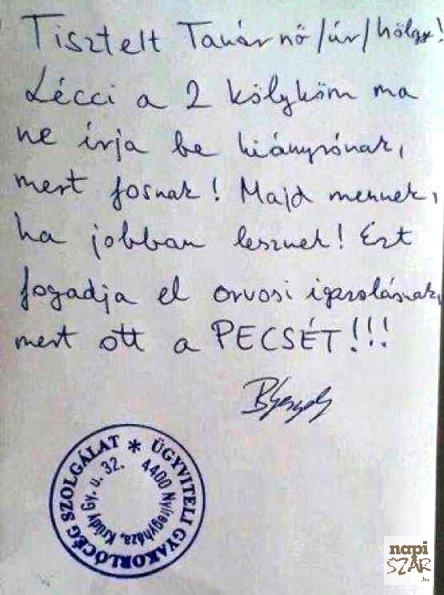 Tisztelt Tanár nő/úr/hölgy!
Lécci a 2 kölyköm ma
ne írja be hiányzónak,
mert fosnak! Majd mennek,
ha jobban lesznek! Ezt
fogadja el orvosi igazolásnak,
mert ott a PECSÉT!!!
ÜGYVITELI GYAKORLÓCÉG SZOLGÁLAT *
4400 Nyíregyháza, Krúdy Gy. u. 32.
napi
SZAR
.hu